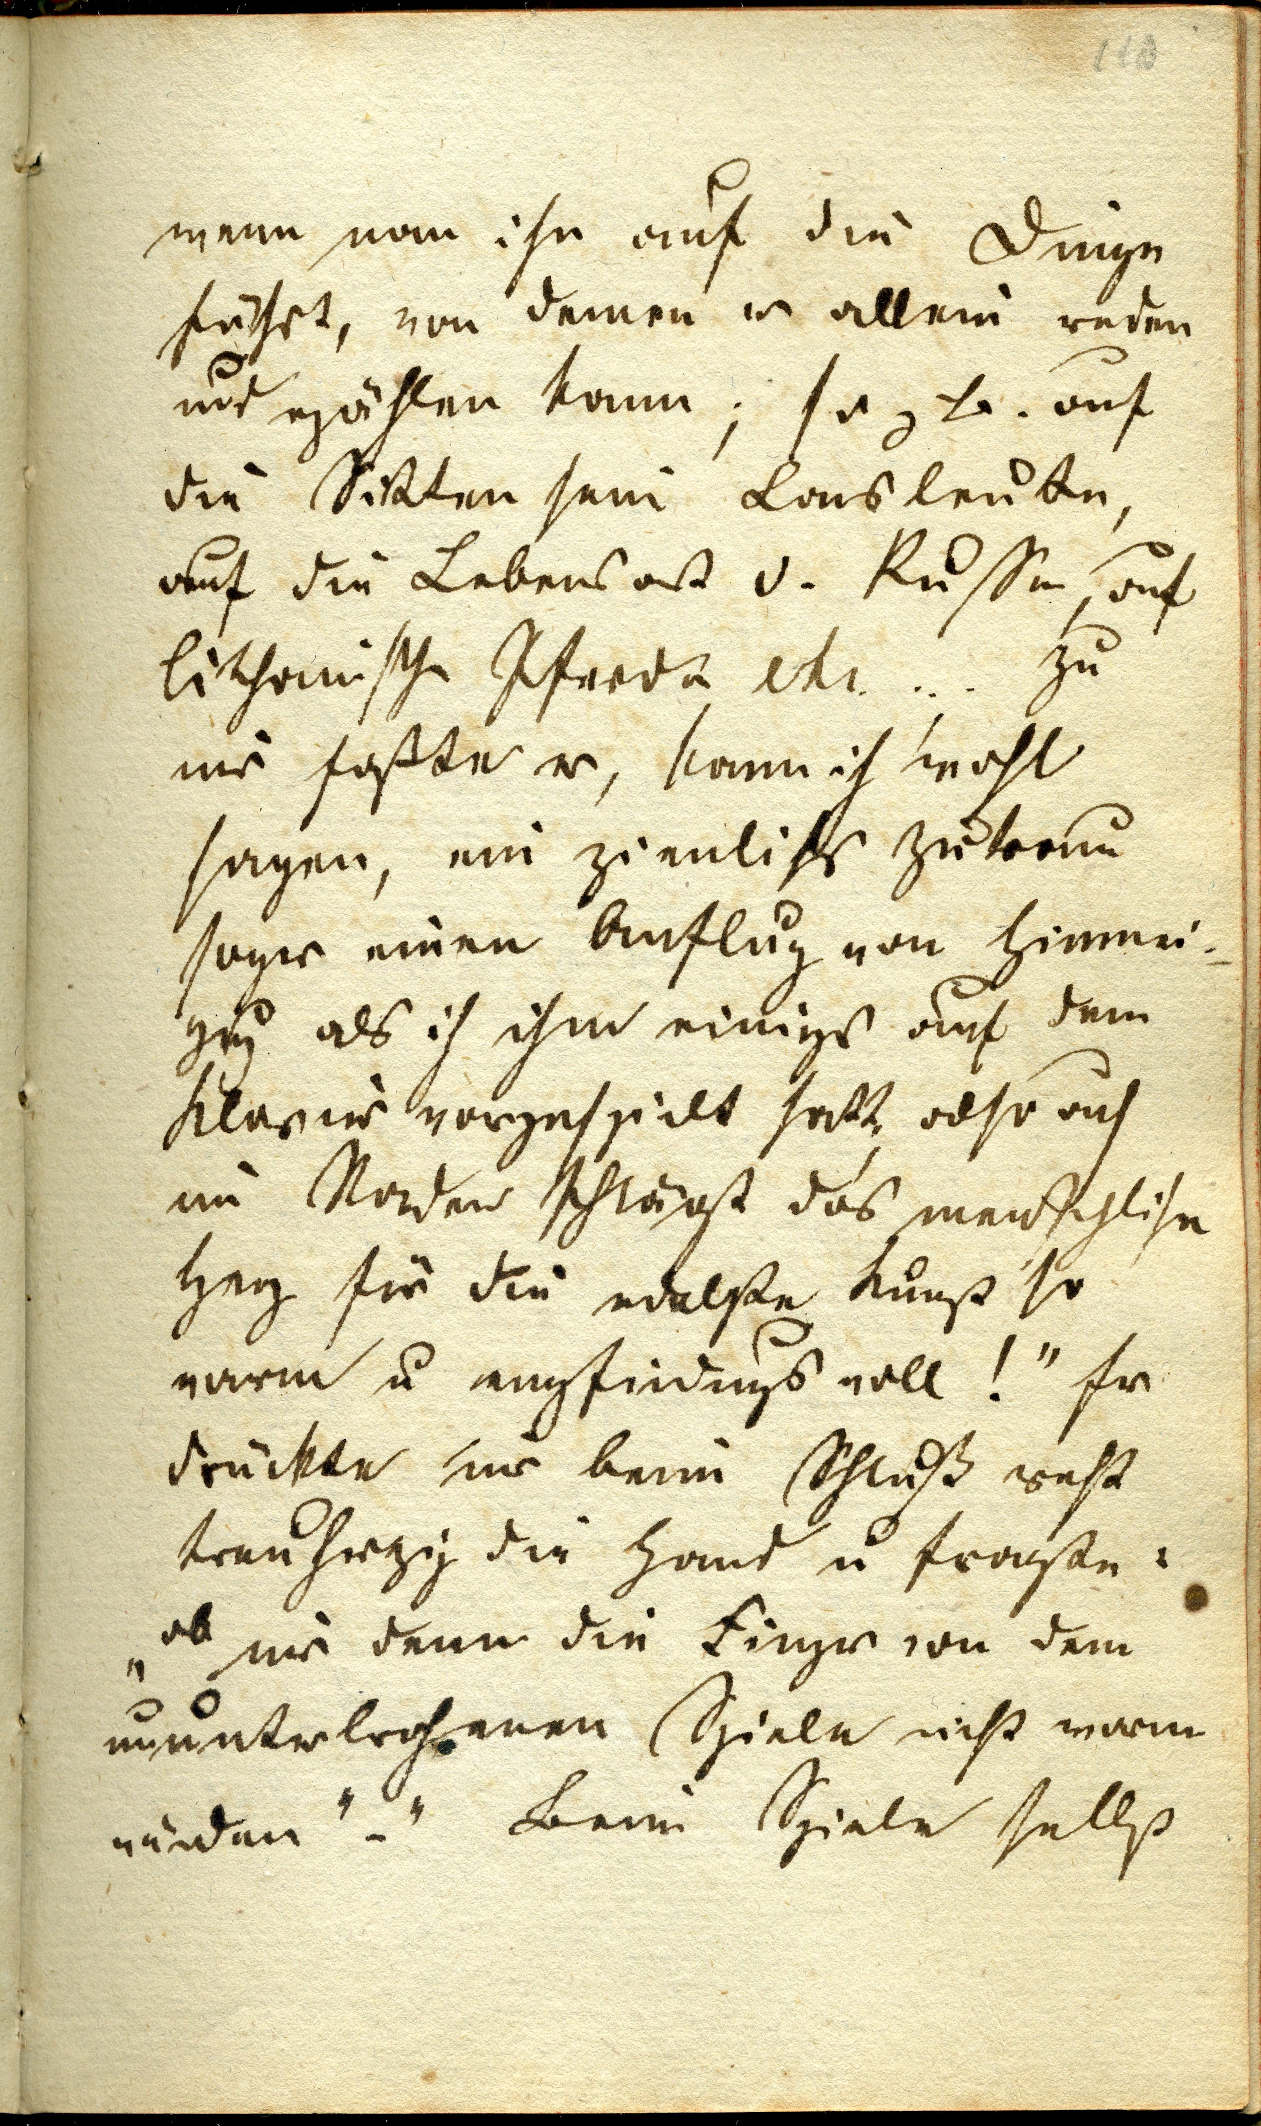 113
wenn man ihn auf die Dinge
führt, von denen er allein reden
und erzählen kann; so z. B. auf
die Sitten sein Landsleute,
auf die Lebensart d. Russen, auf
lithauische Pferde etc. ... Zu
mir faßte er, kann ich wohl
sagen, ein ziemliches Zutraun
sogar einen Anflug von
als ich ihm einiges auf dem
Klavier vorgespielt hatte, also auch
im Norden schlägt das menschliche
Herz für die edelste Kunst so
warm u empfindungsvoll!" Er
drückte mir beim Schluß recht
treuherzig die Hand u fragte:
"ob mir denn die Finger von dem
ununterbrochenen Spiele nicht warm
würden" - " Beim Spiele selbst